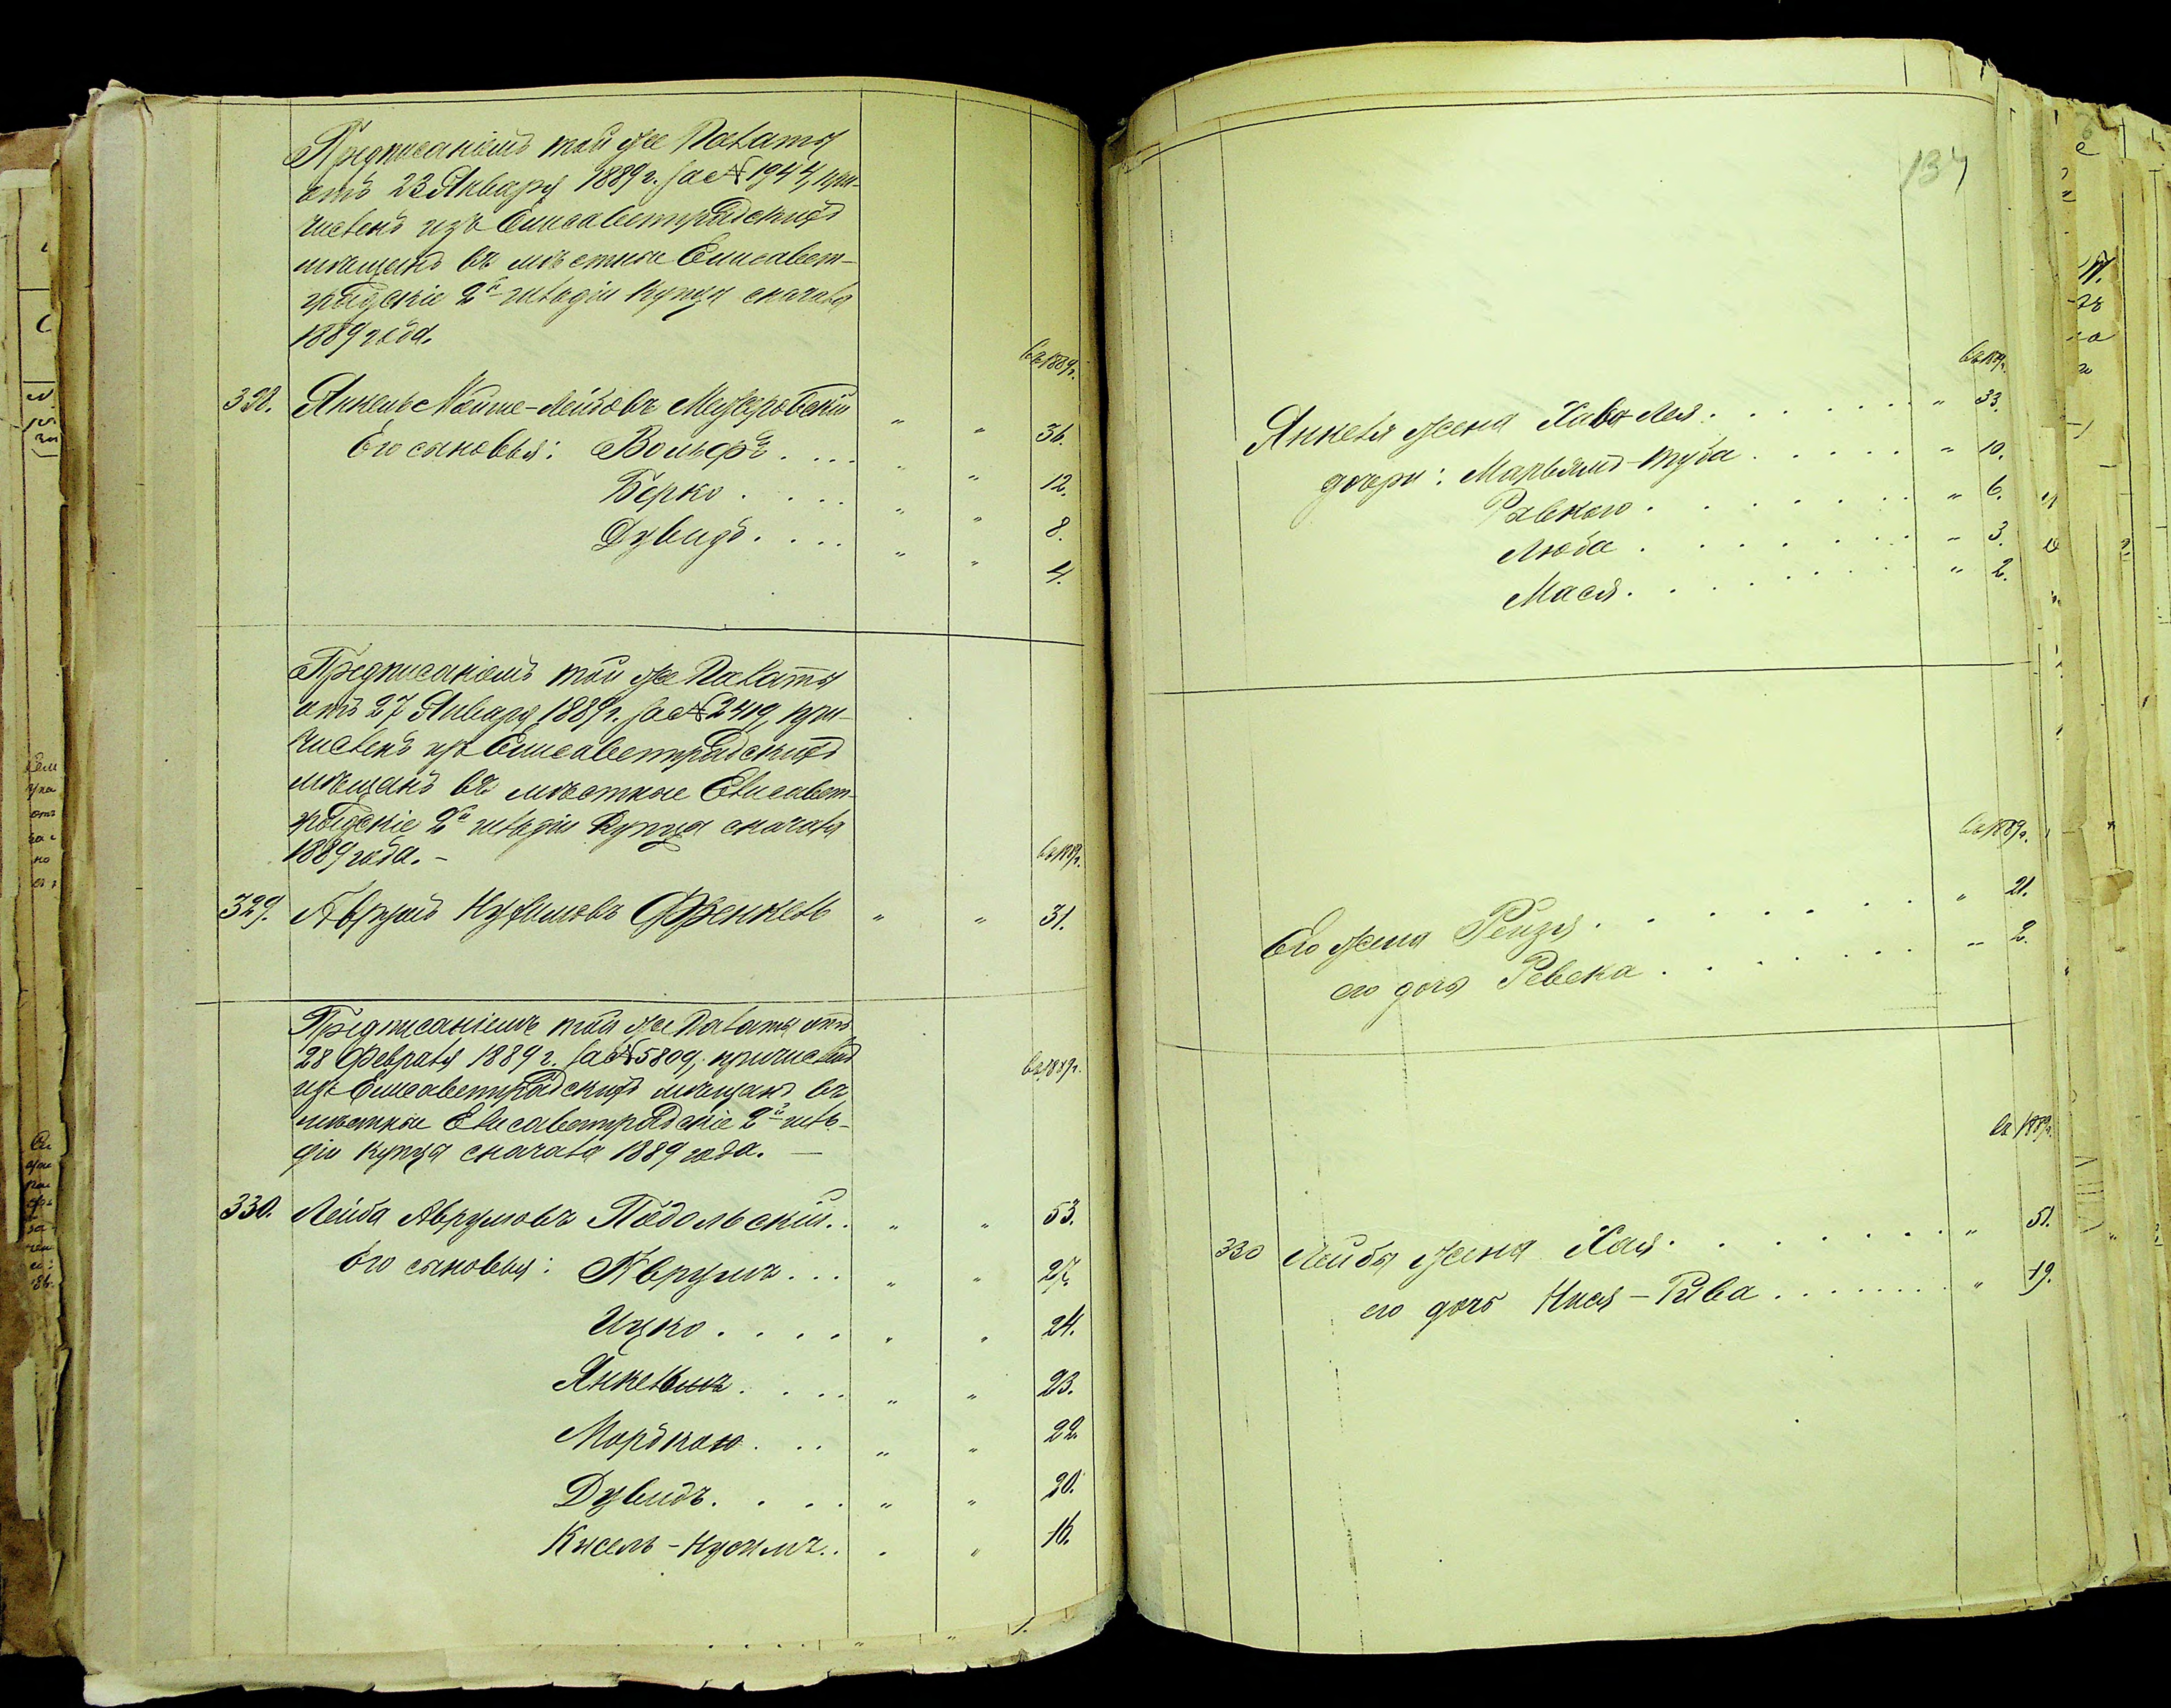 Предписаніемъ той же Палаты
отъ 23 Января 1889 г. за № 1944, при-
численъ изъ Елисаветградскихъ
мѣщанъ въ мѣстные Елисавет-
градскіе 2й гильдіи купцы сначала
1889 года.
въ 1889 г.
328. Янкель Мойше-Лейбовъ 36.
Его сыновья: Вольфъ . . . " " 12.
Берко . . . . " " 8.
Дувидъ . . . . " " 4.
Предписаніемъ той же Палаты
отъ 27 Января 1889 г. за № 2419, при-
численъ изъ Елисаветградскихъ
мѣщанъ въ мѣстные Елисавет-
градскіе 2й гильдіи купцы сначала
1889 года. –
въ 1889 г.
329. Френкель " " 31.
Предписаніемъ той же Палаты отъ
28 Февраля 1889 г. за № 5809, причисленъ
изъ Елисаветградскихъ мѣщанъ въ
мѣстные Елисаветградскіе 2й гиль-
діи купцы сначала 1889 года. —
въ 1889 г.
330. Лейба Аврумовъ Подольскій . . " " 53.
Его сыновья: Аврумъ . . . " " 27.
Ицко . . . . " " 24.
Янкель . . . . " " 23.
Мордко . . . " " 22.
Дувидъ . . . . " " 20.
Кисель-Нусимъ . . " " 16.
137
въ 1889 г.
Янкеля жена Хава-Лея . . . . . . . " 33.
дочери: Марьямъ- . . . . . " 10.
" 6.
Люба . . . . . . . " 3.
Мася . . . . . . . " 2.
въ 1889 г.
Его жена Рейзя . . . . . . . . " 21.
его дочь Ревека . . . . . . . " 2.
въ 1889 г.
330 Лейбы жена Хая . . . . . . . . " 51.
его дочь -Рива . . . . . . . " 19.